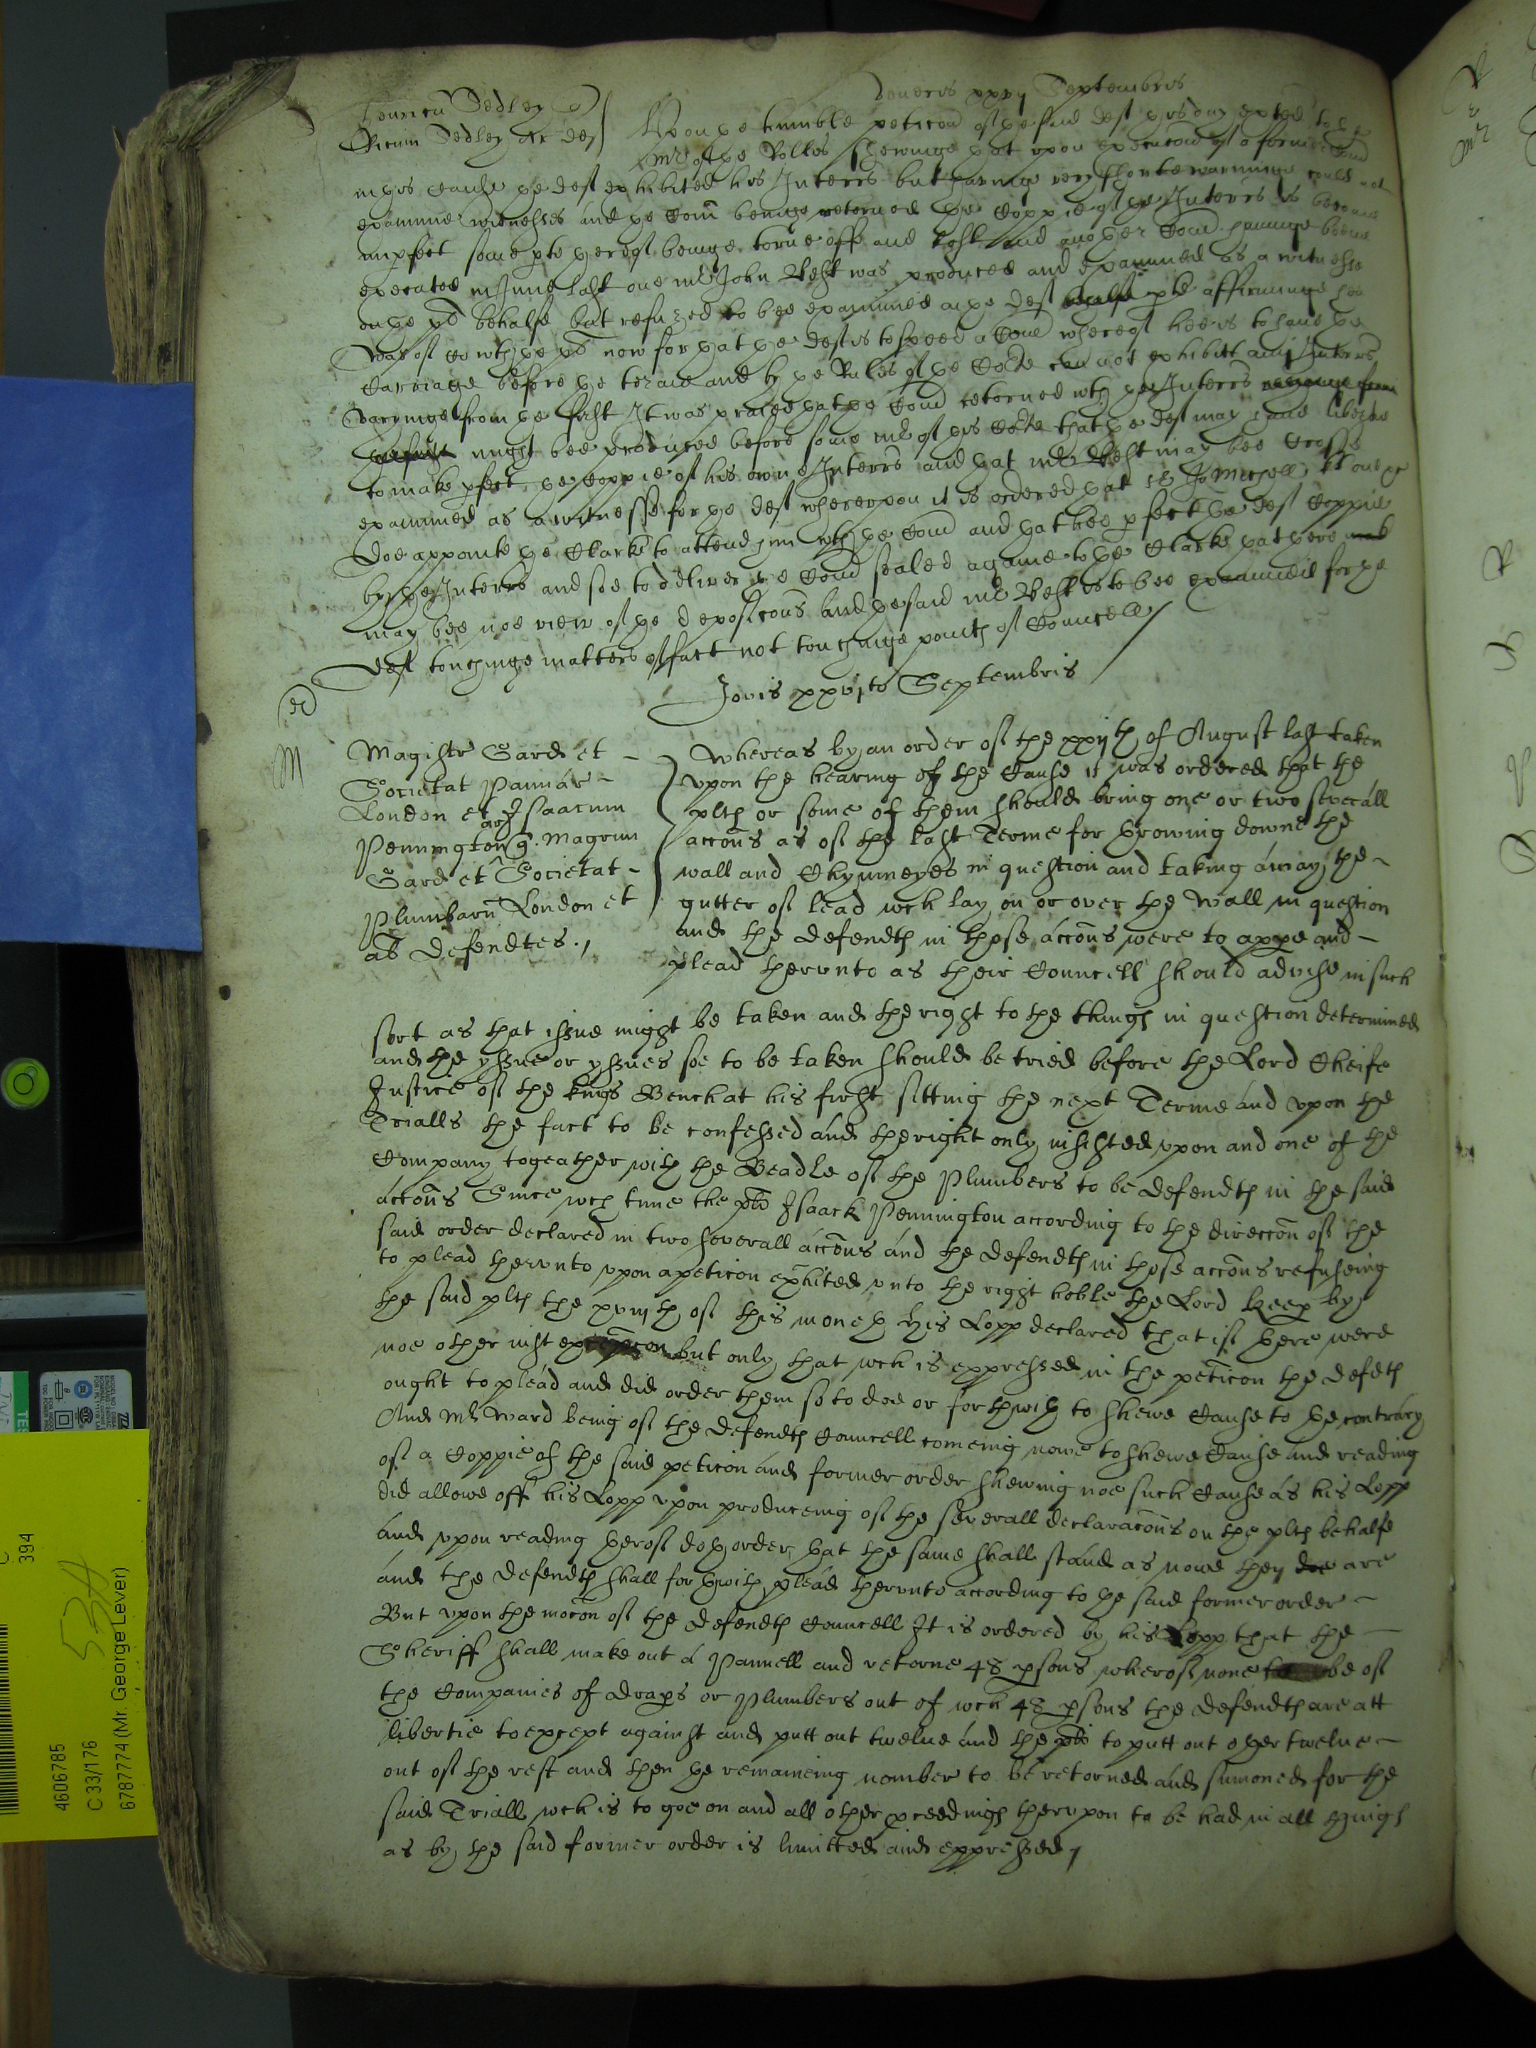 Veneris xxvij Septembris
Henricu Sedley q
Ricum Sedley Ar def
Upon ye humble peticon of ye said deft this day exted to ye
Mr of ye Rolles shewinge yt upon execucon of a former Comd
in this cause ye deft exhibited his Interrs but havinge very shorte warninge could not
examine witnesses and ye Com beinge retorned ye Coppie of ye Interrs is become
imperfect some pte thereof beinge torne off and lost and another Comd havinge beene
executed in June last one mr John West was produced and examined as a witnesse
on ye pls behalfe but refuzed to bee examined on ye defts pte affirminge hee
was of Co wth ye pl now for that ye deft is to speed a Com whereof hee is to have ye
carriage before ye terme and by ye Rules of ye Corte can not exhibitt any Interrs
varyinge from ye first It was praied that ye Comd retorned wth ye Interrs
might bee produced before some mr of this Corte that ye deft may have libertie
to make pfect ye Coppie of his owne Interrs and that mr West may bee crosse
examined as a witnesse for ye deft whereupon it is ordered that
doe appointe ye Clarke to attend him wth ye Comd and that hee pfect ye defts Coppie
by ye Interrs and soe to deliver ye Comd sealed againe to ye Clarke that there
may bee noe view of ye deposicons And ye said mr West is to bee examined for ye
deft touchinge matters of fact not touchinge points of Councell
Jovis xxvjto Septembris
M
Magistr Gard et
Societat Pannar
London et Isaacum
Pennington ar q. Magrum
Gard et Societat
Plumbaru London et
al defendtes
Whereas by an order of the xxijth of August last taken
upon the hearing of the Cause it was ordered that the
plts or some of them should bring one or two severall
accons as of the last Terme for throwing downe the
wall and Chymneyes in question and taking away the
gutter of lead wch lay on or over the wall in question
and the defendts in those accons were to appe and
plead therunto as their Councell should advise in such
sort as that issue might be taken and the right to the things in question determined
and the yssue or yssues soe to be taken should be tried before the Lord Cheife
Justice of the kings Bench at his first sitting the next Terme and upon the
Trialls the fact to be confessed and the right only insisted upon and one of the
Company togeather with the Beadle of the Plumbers to be defendts in the said
accons Since wch time the plt Isaack Pennington according to the direccon of the
said order declared in two severall accons and the defendts in those accons refuseing
to plead therunto upon a peticon exhited unto the right hoble the Lord Keep by
the said plts the xviijth of this moneth his Lopp declared that if there were
noe other inst but only that wch is expressed in the peticon the defdts
ought to plead and did order them so to doe or forthwith to shewe Cause to the contrary
And Mr Ward being of the defendts Councell comeing nowe to shewe Cause and reading
of a Coppie of the said peticon and former order shewing noe such Cause as his Lopp
did allowe off his Lopp upon produceing of the severall declaracons on the plts behalfe
and upon reading therof doth order that the same shall stand as nowe they doe are
and the defendts shall forthwith plead therunto according to the said former order
But upon the mocon of the defendts Councell It is ordered by his Lopp that the
Sheriff shall make out a Pannell and retorne 48 psons wherof none be of
the Companies of Draps or Plumbers out of wch 48 psons the defendts are att
libertie to except against and putt out twelve and the plts to putt out other twelve
out of the rest and then the remaineing nomber to be retorned and sumoned for the
said Triall wch is to goe on and all other pceedings therupon to be had in all things
as by the said former order is limitted and expressed
394
4606785
C 33/176
6787774 (Mr. George Lever)